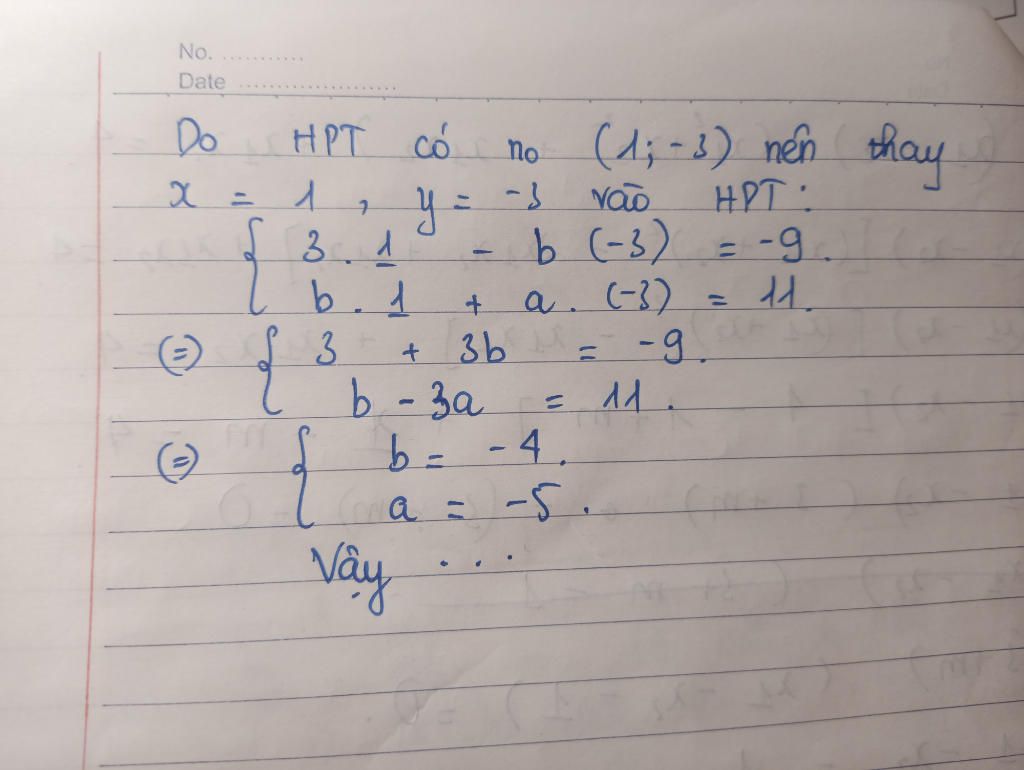 No. ...........
Date .....................
Do HPT có no (1; -3) nên thay
x = 1 , y = -3 vào HPT:
{ 3 . 1 - b (-3) = -9 .
b . 1 + a . (-3) = 11.
(=) { 3 + 3b = -9 .
b - 3a = 11 .
(=) { b = -4 .
a = -5 .
Vậy ...